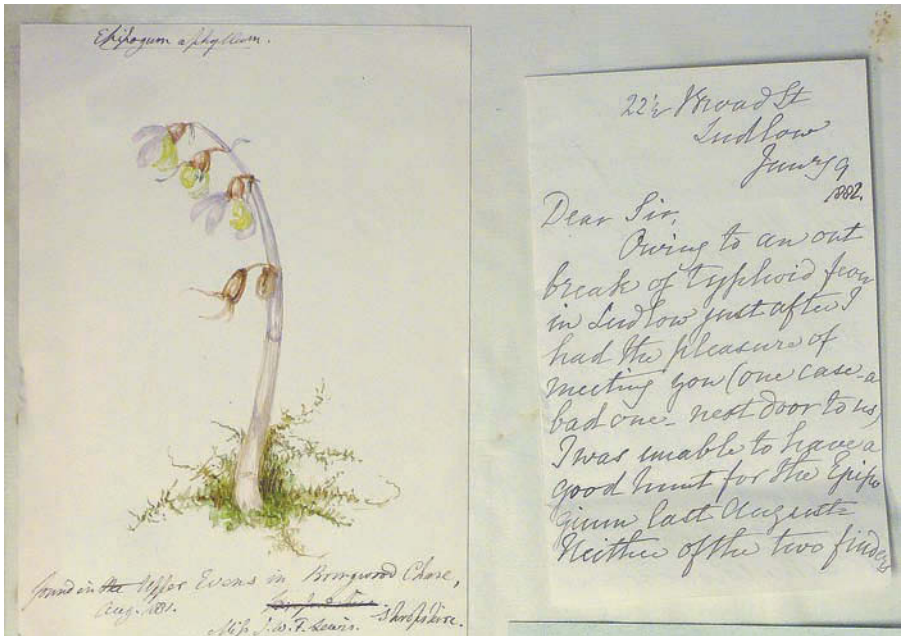 Epipogum aphyllum.
found in the Upper Evens in Bringwood Chase,
Aug. 1881.
Shropshire.
Miss J. W. F. Lewis.
22½ Broad St
Ludlow
Jany 9
1882.
Dear Sir,
Owing to an out
break of typhoid fever
in Ludlow just after I
had the pleasure of
meeting you (one case - a
bad one - next door to us)
I was unable to have a
good hunt for the Epipo
gium last August -
Neither of the two finders